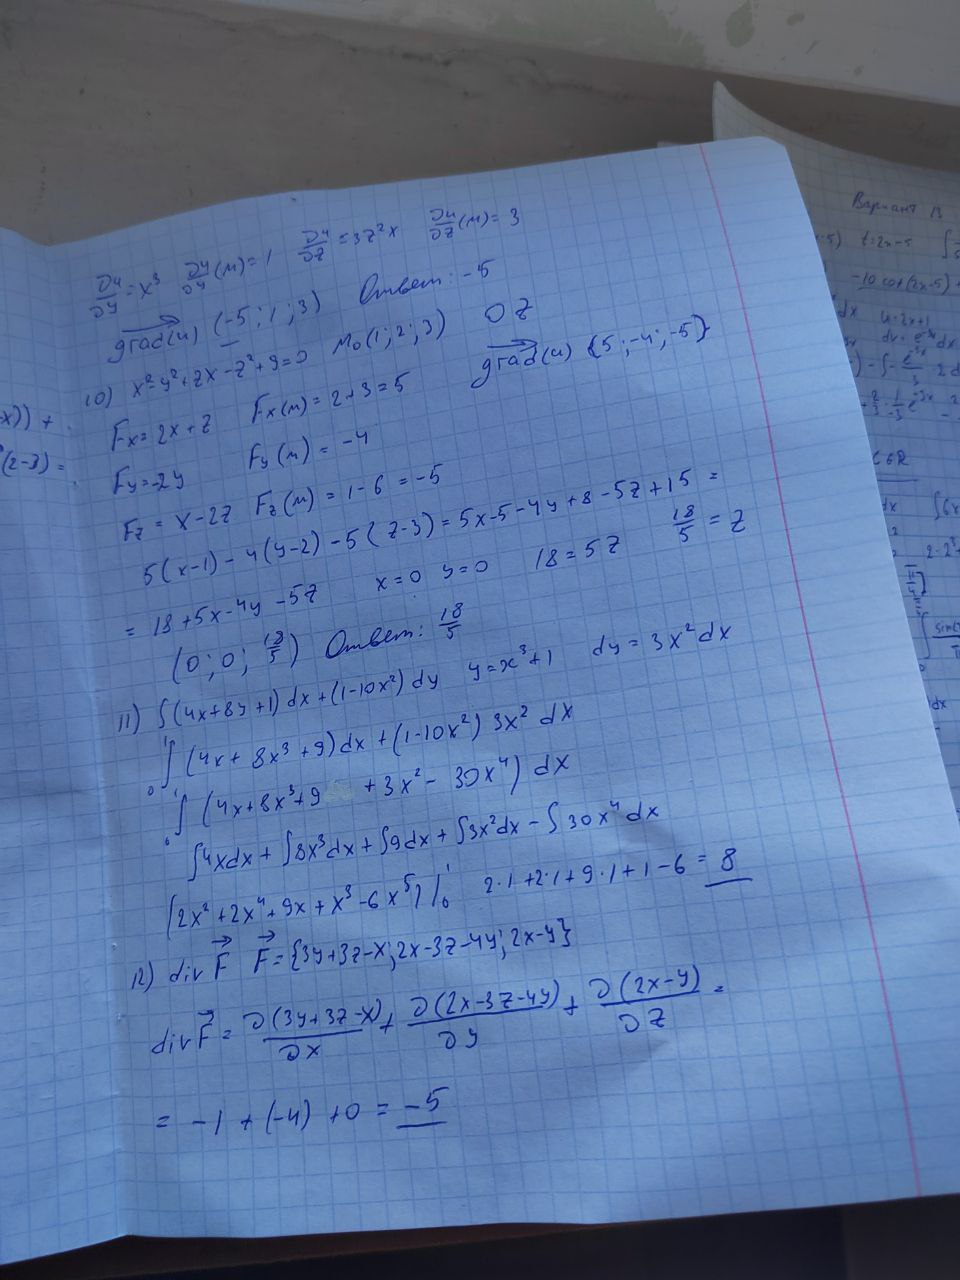 ∂u/∂y = x³ ∂u/∂y (м) = 1 ∂u/∂z = 3z²x ∂u/∂z (м) = 3
grad(u) (-5; 1; 3) Ответ: -5
10) x²-y²+zx-z²+9=0 M₀(1; 2; 3) OZ
Fx = 2x+z Fx(м) = 2+3=5 grad(u) {5; -4; -5}
Fy=-2y Fy(м) = -4
Fz = x-2z Fz(м) = 1-6 = -5
5(x-1) - 4(y-2) - 5(z-3) = 5x-5-4y+8-5z+15 =
= 18+5x-4y-5z x=0 y=0 18=5z 18/5 = z
(0; 0; 18/5) Ответ: 18/5
11) ∫(4x+8y+1)dx+(1-10x²)dy y=x³+1 dy=3x²dx
₀∫¹ (4x+8x³+9)dx+(1-10x²) 3x² dx
₀∫¹ (4x+8x³+9 +3x²-30x⁴) dx
∫4xdx+∫8x³dx+∫9dx+∫3x²dx-∫30x⁴dx
(2x²+2x⁴+9x+x³-6x⁵)|₀¹ 2·1+2·1+9·1+1-6=8
12) div F F={3y+3z-x; 2x-3z-4y; 2x-y}
div F = ∂(3y+3z-x)/∂x + ∂(2x-3z-4y)/∂y + ∂(2x-y)/∂z =
= -1+(-4)+0=-5
x)) +
(2-3) =
Вариант 13
-5) t=2x-5
-10 cos(2x-5)
dx u=2x+1